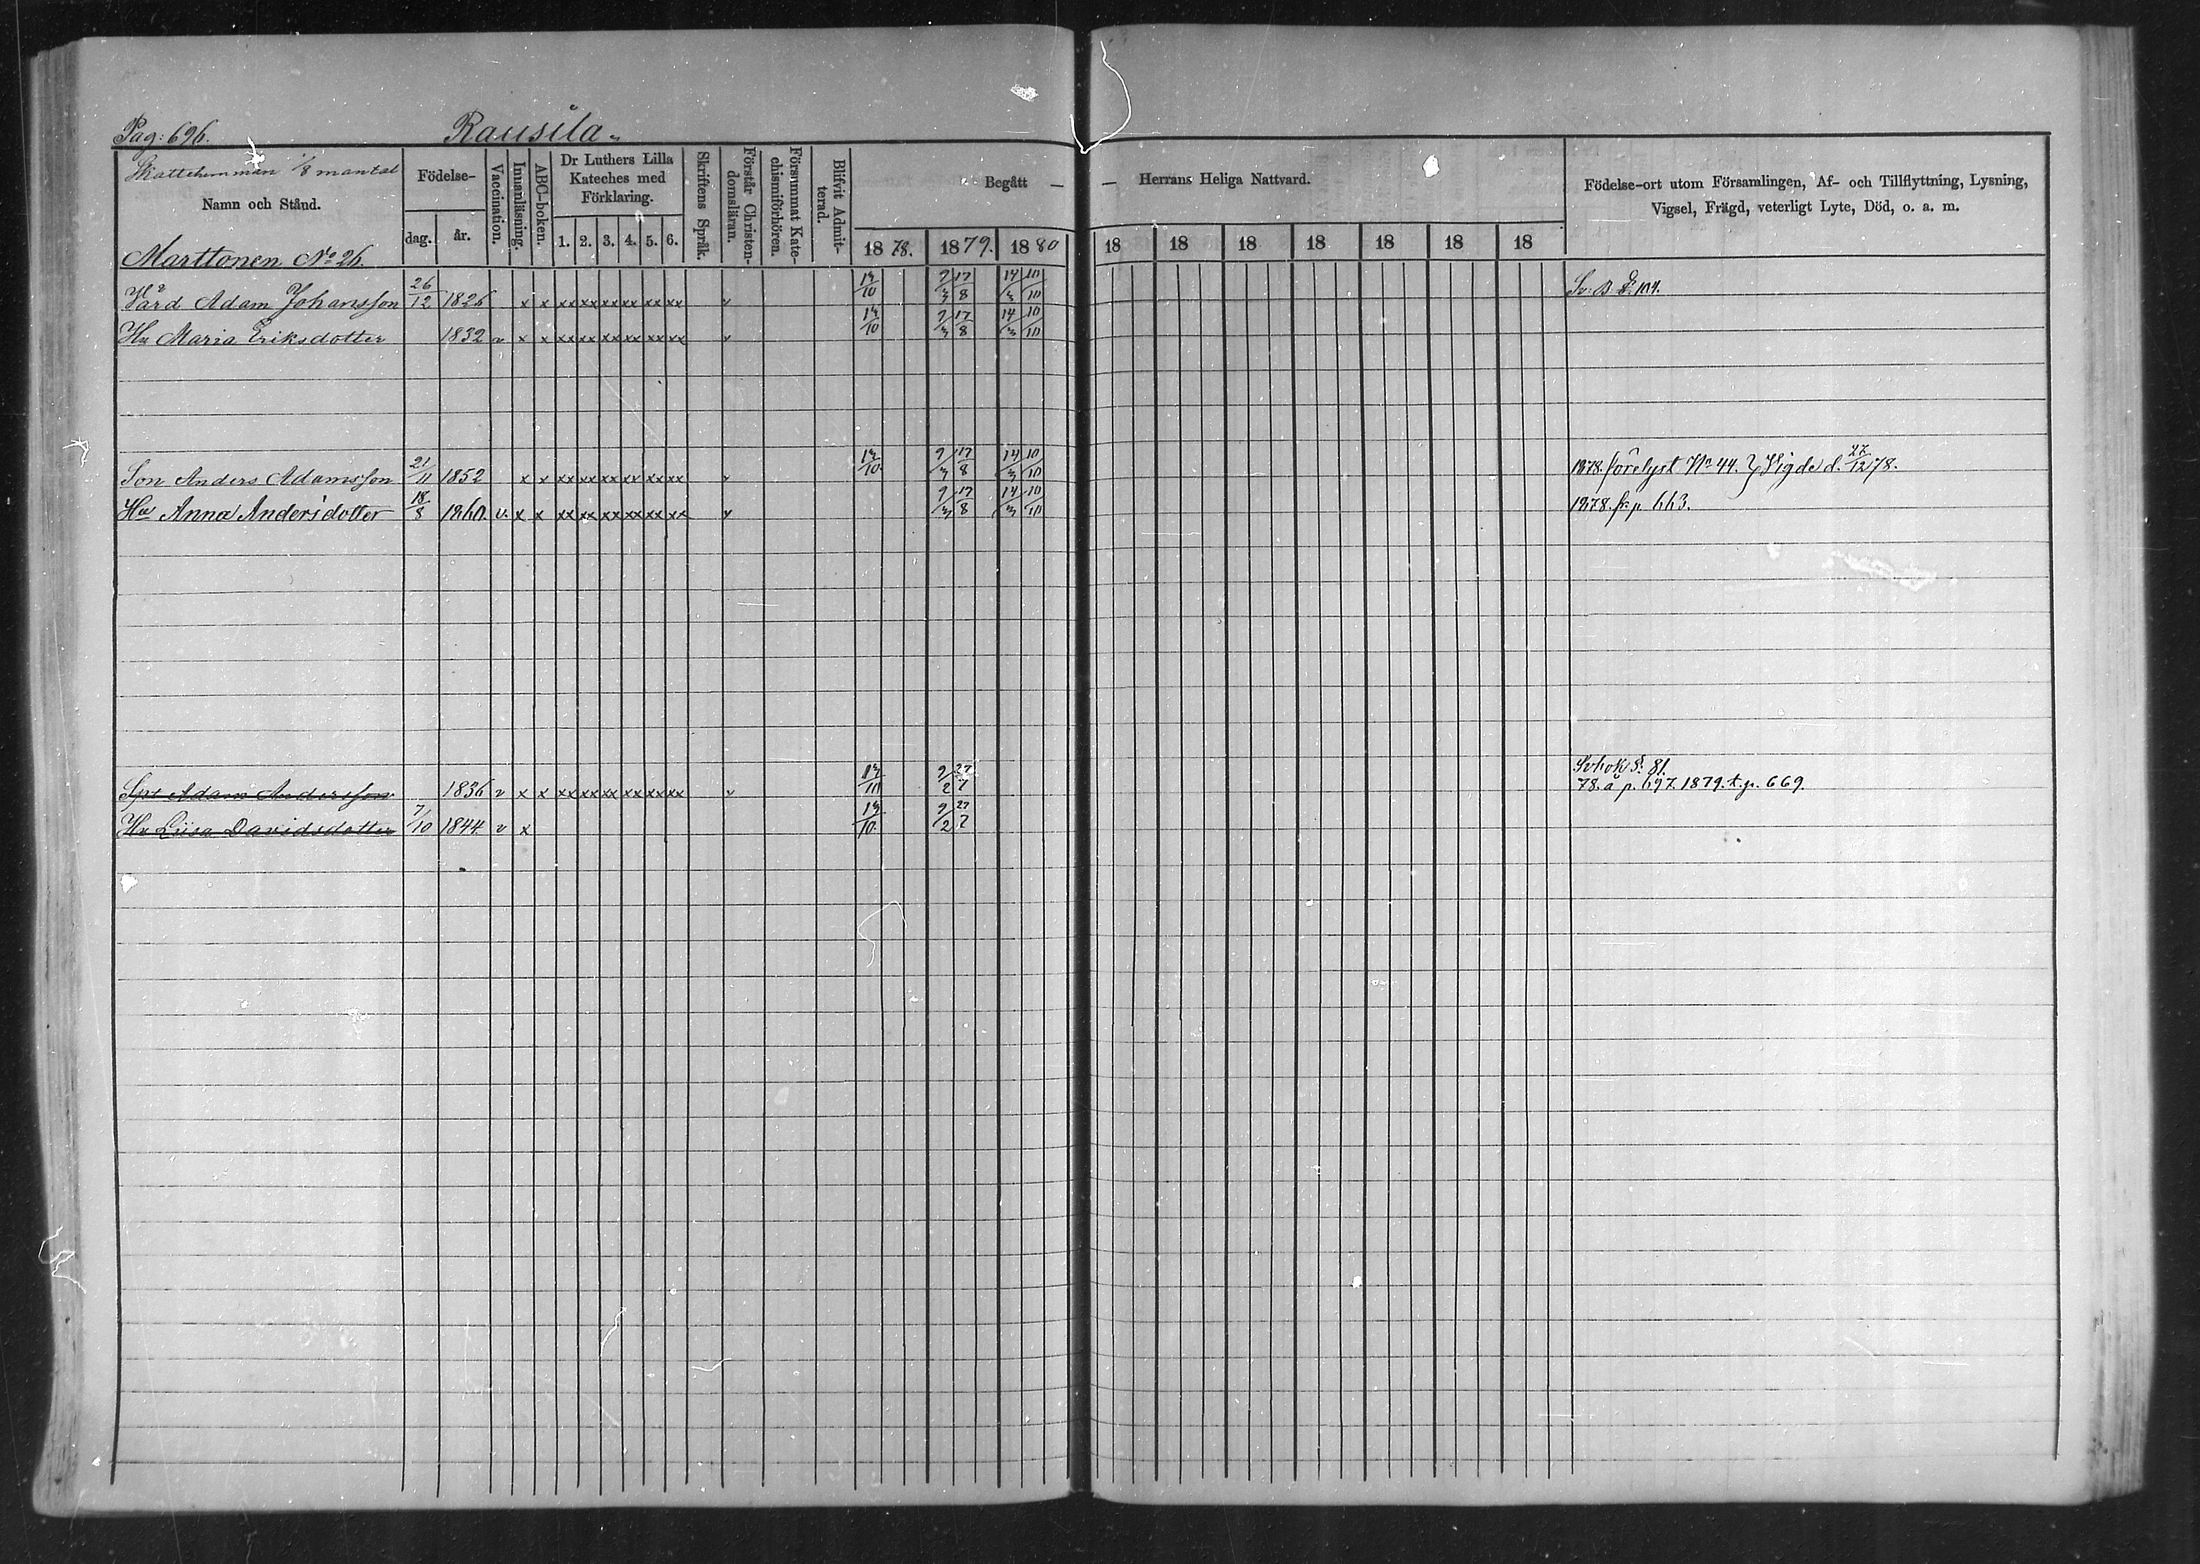 Pag: 696. Rausila
Skattehemman 1/8 mantal
Namn och Stånd.
Födelse-
dag. år.
Vaccination.
Innanläsning.
ABC-boken.
Dr Luthers Lilla
Kateches med
Förklaring.
1. 2. 3. 4. 5. 6.
Skriftens Språk.
Förstår Christen-
domsläran.
Försummat Kate-
chismiförhören.
Blifvit Admit-
terad.
Begått — — Herrans Heliga Nattvard.
1878. 1879. 1880 18 18 18 18 18 18 18
Födelse-ort utom Församlingen, Af- och Tillflyttning, Lysning,
Vigsel, Frägd, veterligt Lyte, Död, o. a. m.
Marttonen No 26.
Vård Adam Johansson 26/12 1826 x x xx xx xx xx xx xx v 13/10 9/3 17/8 14/3 10/10
Hu Maria Eriksdotter 1832 v x x xx xx xx xx xx xx v 13/10 9/3 17/8 14/3 10/10
Son Anders Adamsson 21/11 1852 x x xx xx xx xx xx xx v 13/10 9/3 17/8 14/3 10/10 1878. förelyst No 44. Vigde d. 27/12 78.
Hu Anna Andersdotter 18/8 1860. v. x x xx xx xx xx xx xx v 9/3 17/8 14/3 10/10 1878. fr. p 663.
Spt Adam Andersson 1836 v x x xx xx xx xx xx xx v 13/10 9/2 27/7 78. å p. 697. 1879. t. p. 669.
Hu Liisa Davidsdotter 7/10 1844. v x 13/10 9/2 27/7